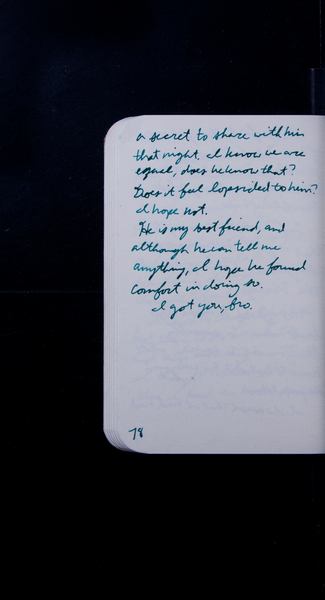 a secret to share with him
that night. I know we are
equal, does he know that?
Does it feel lopsided to him?
I hope not.
He is my best friend, and
although he can tell me
anything, I hope he found
comfort in doing so.
I got you, bro.
78